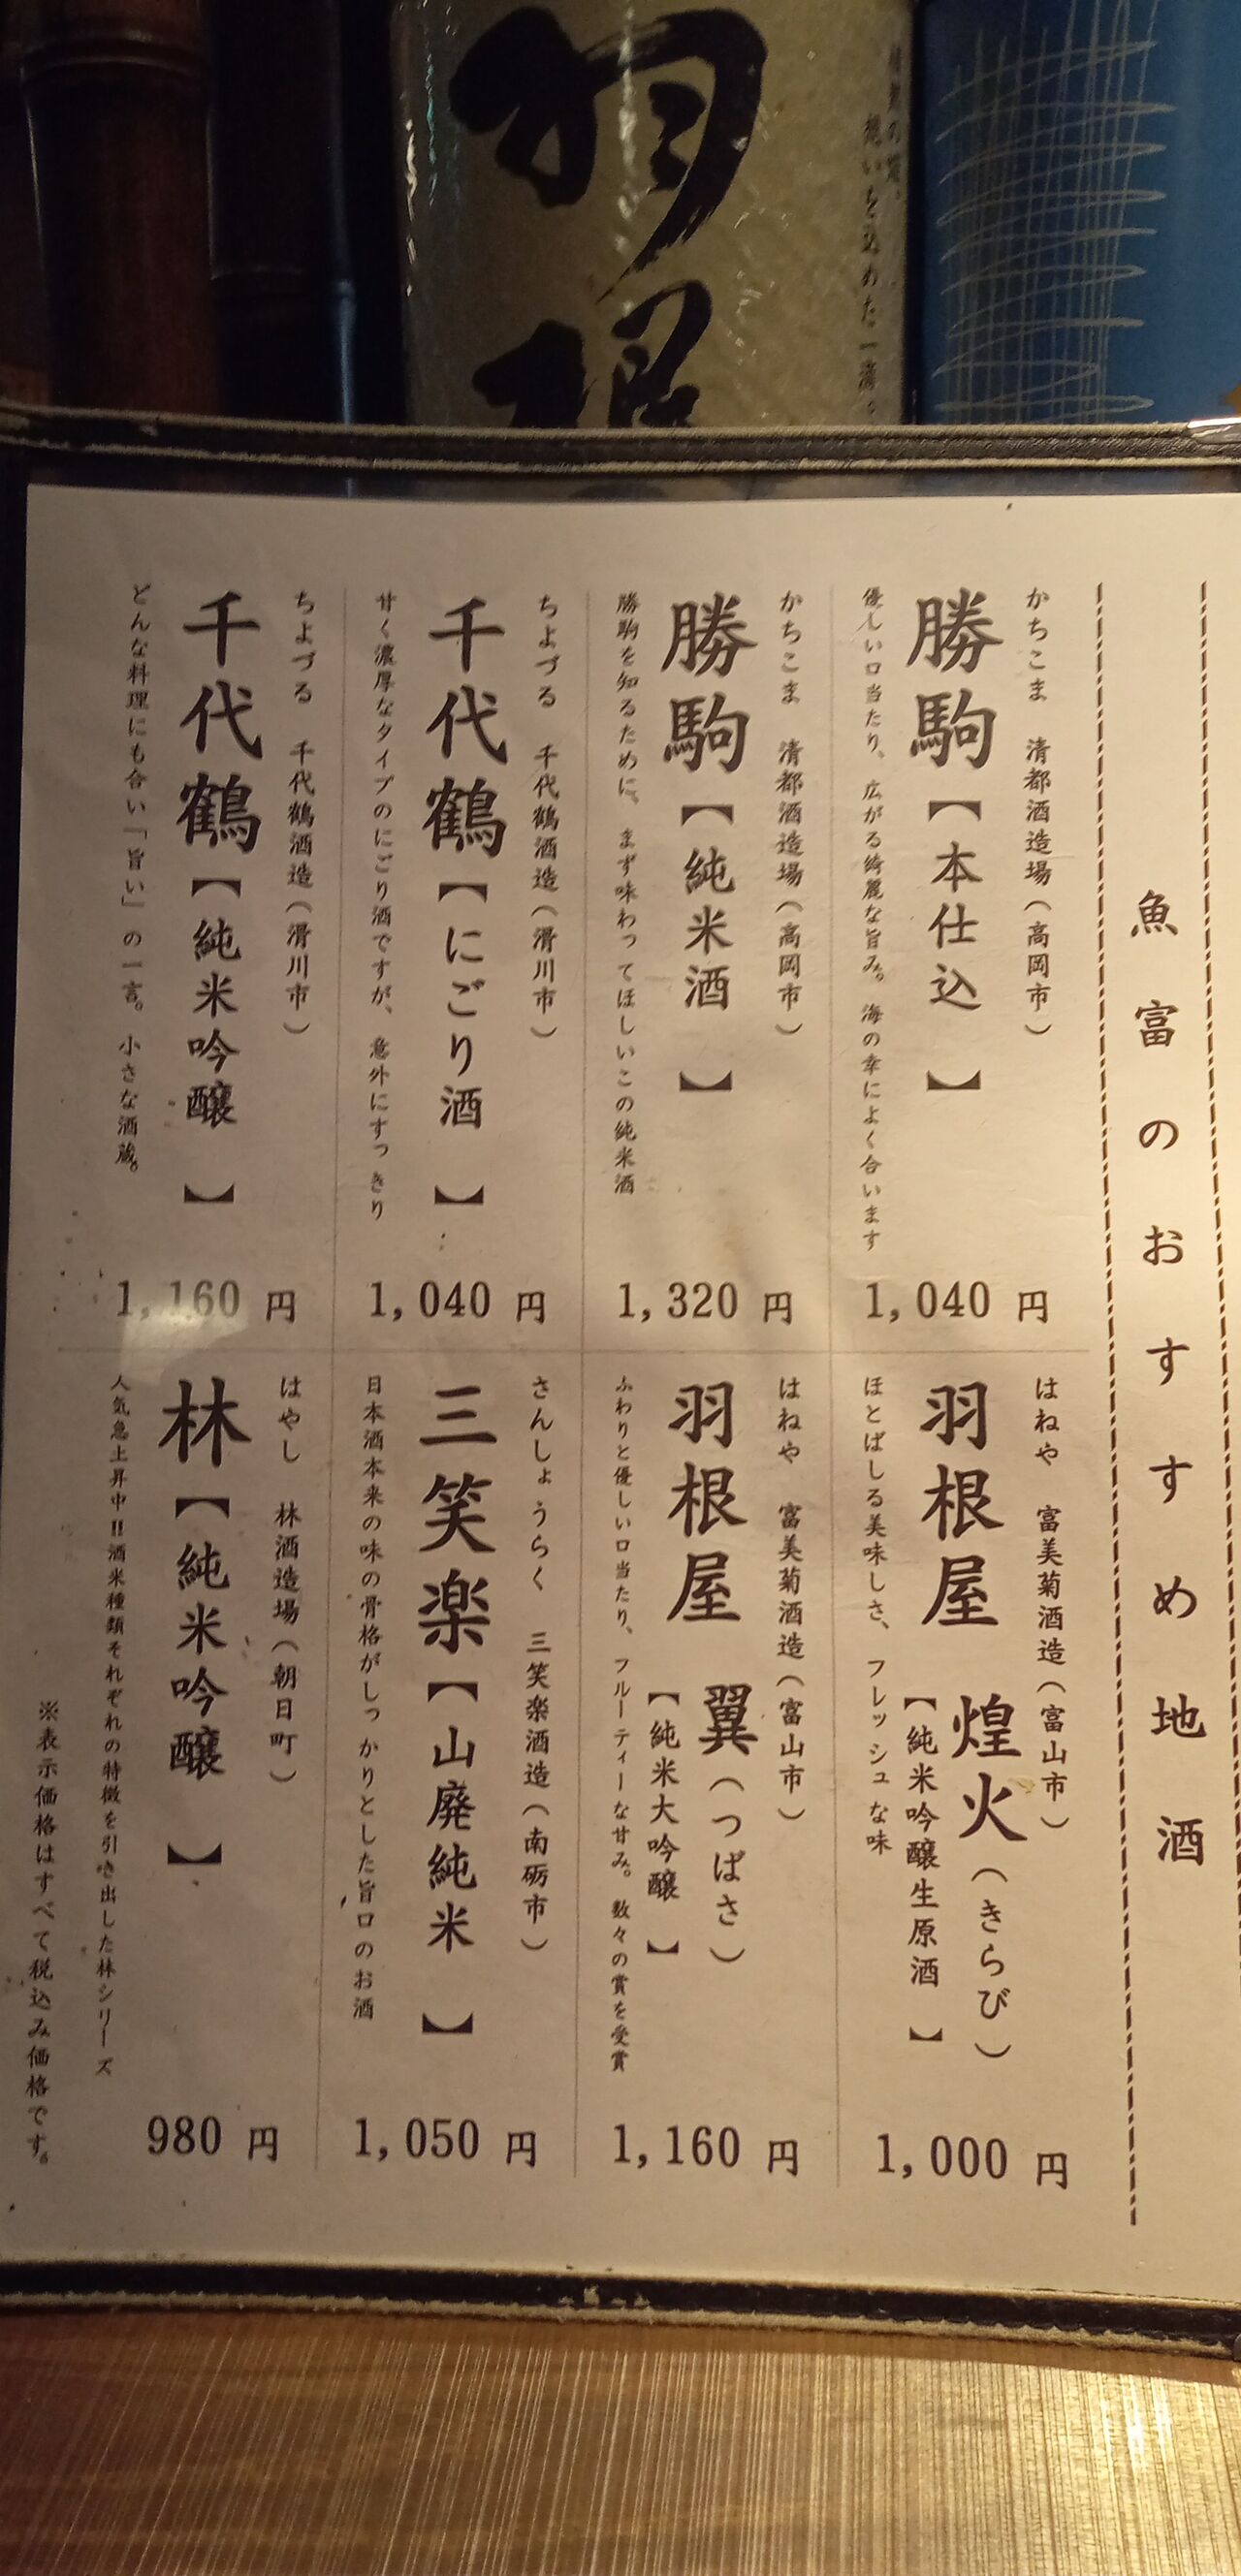 羽根
想いを込めた一滴。
魚富のおすすめ地酒
かちこま 清都酒造場(高岡市)
勝駒【本仕込】
優しい口当たり、広がる綺麗な旨み。海の幸によく合います
1,040 円
かちこま 清都酒造場(高岡市)
勝駒【純米酒】
勝駒を知るために、まず味わってほしいこの純米酒
1,320 円
ちよづる 千代鶴酒造(滑川市)
千代鶴【にごり酒】
甘く濃厚なタイプのにごり酒ですが、意外にすっきり
1,040 円
ちよづる 千代鶴酒造(滑川市)
千代鶴【純米吟醸】
どんな料理にも合い「旨い」の一言。小さな酒蔵。
1,160 円
はねや 富美菊酒造(富山市)
羽根屋 煌火(きらび)
【純米吟醸生原酒】
ほとばしる美味しさ、フレッシュな味
1,000 円
はねや 富美菊酒造(富山市)
羽根屋 翼(つばさ)
【純米大吟醸】
ふわりと優しい口当たり、フルーティーな甘み。数々の賞を受賞
1,160 円
さんしょうらく 三笑楽酒造(南砺市)
三笑楽【山廃純米】
日本酒本来の味の骨格がしっかりとした旨口のお酒
1,050 円
はやし 林酒造場(朝日町)
林【純米吟醸】
人気急上昇中!!酒米種類それぞれの特徴を引き出した林シリーズ
980 円
※表示価格はすべて税込み価格です。